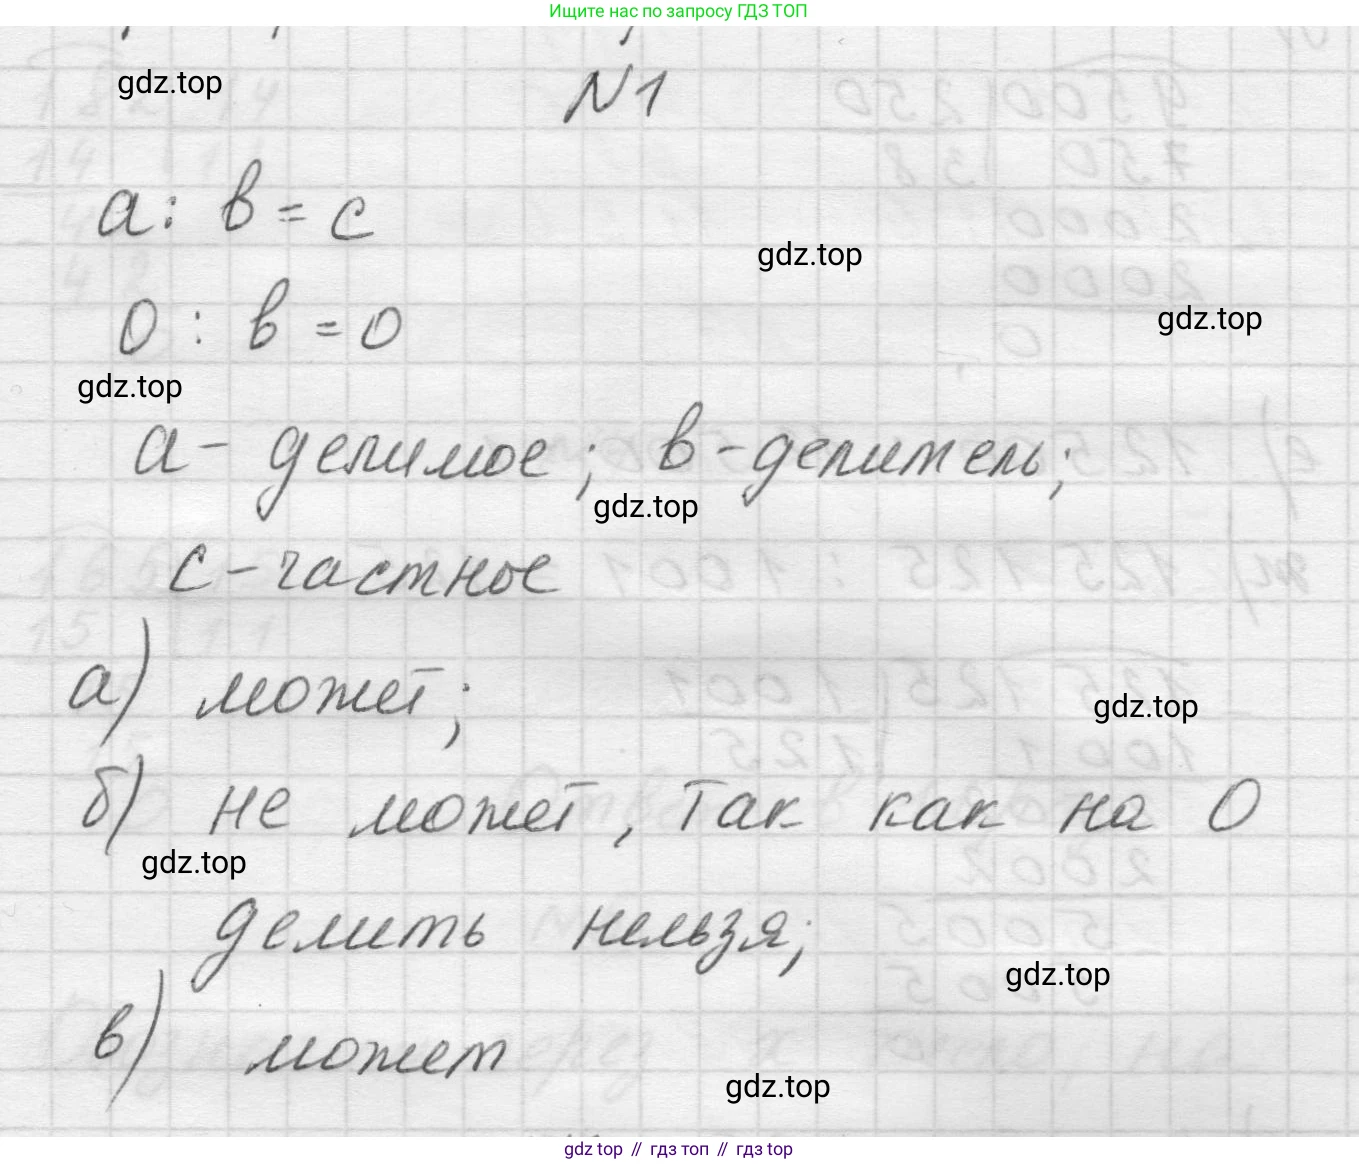 Ищите нас по запросу ГДЗ ТОП
gdz.top
N1
а: в = с
gdz.top
0 : в = 0
gdz.top
gdz.top
а - делимое; в - делитель;
gdz.top
с - частное
а) может;
gdz.top
б) не может, так как на 0
gdz.top
делить нельзя;
gdz.top
в) может
gdz.top
gdz top // гдз топ // gdz top